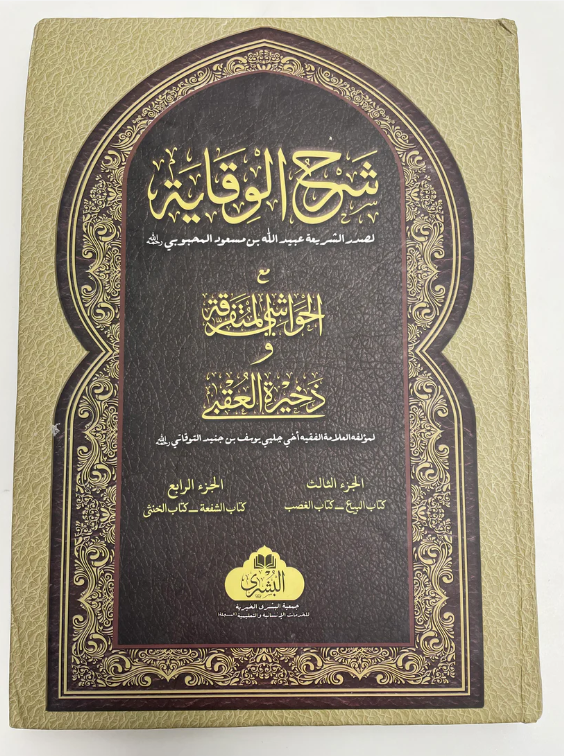 شرح الوقاية
لصدر الشريعة عبيد الله بن مسعود المحبوبي رحمه الله
مع
الحواشي المتفرقة
و
ذخيرة العقبى
لمؤلفه العلامة الفقيه أخي جلبي يوسف بن جنيد التوقاتي رحمه الله
الجزء الثالث
كتاب البيع – كتاب الغصب
الجزء الرابع
كتاب الشفعة – كتاب الخنثى
البشرى
جمعية البشرى الخيرية
للخدمات الإنسانية والتعليمية (المسجلة)